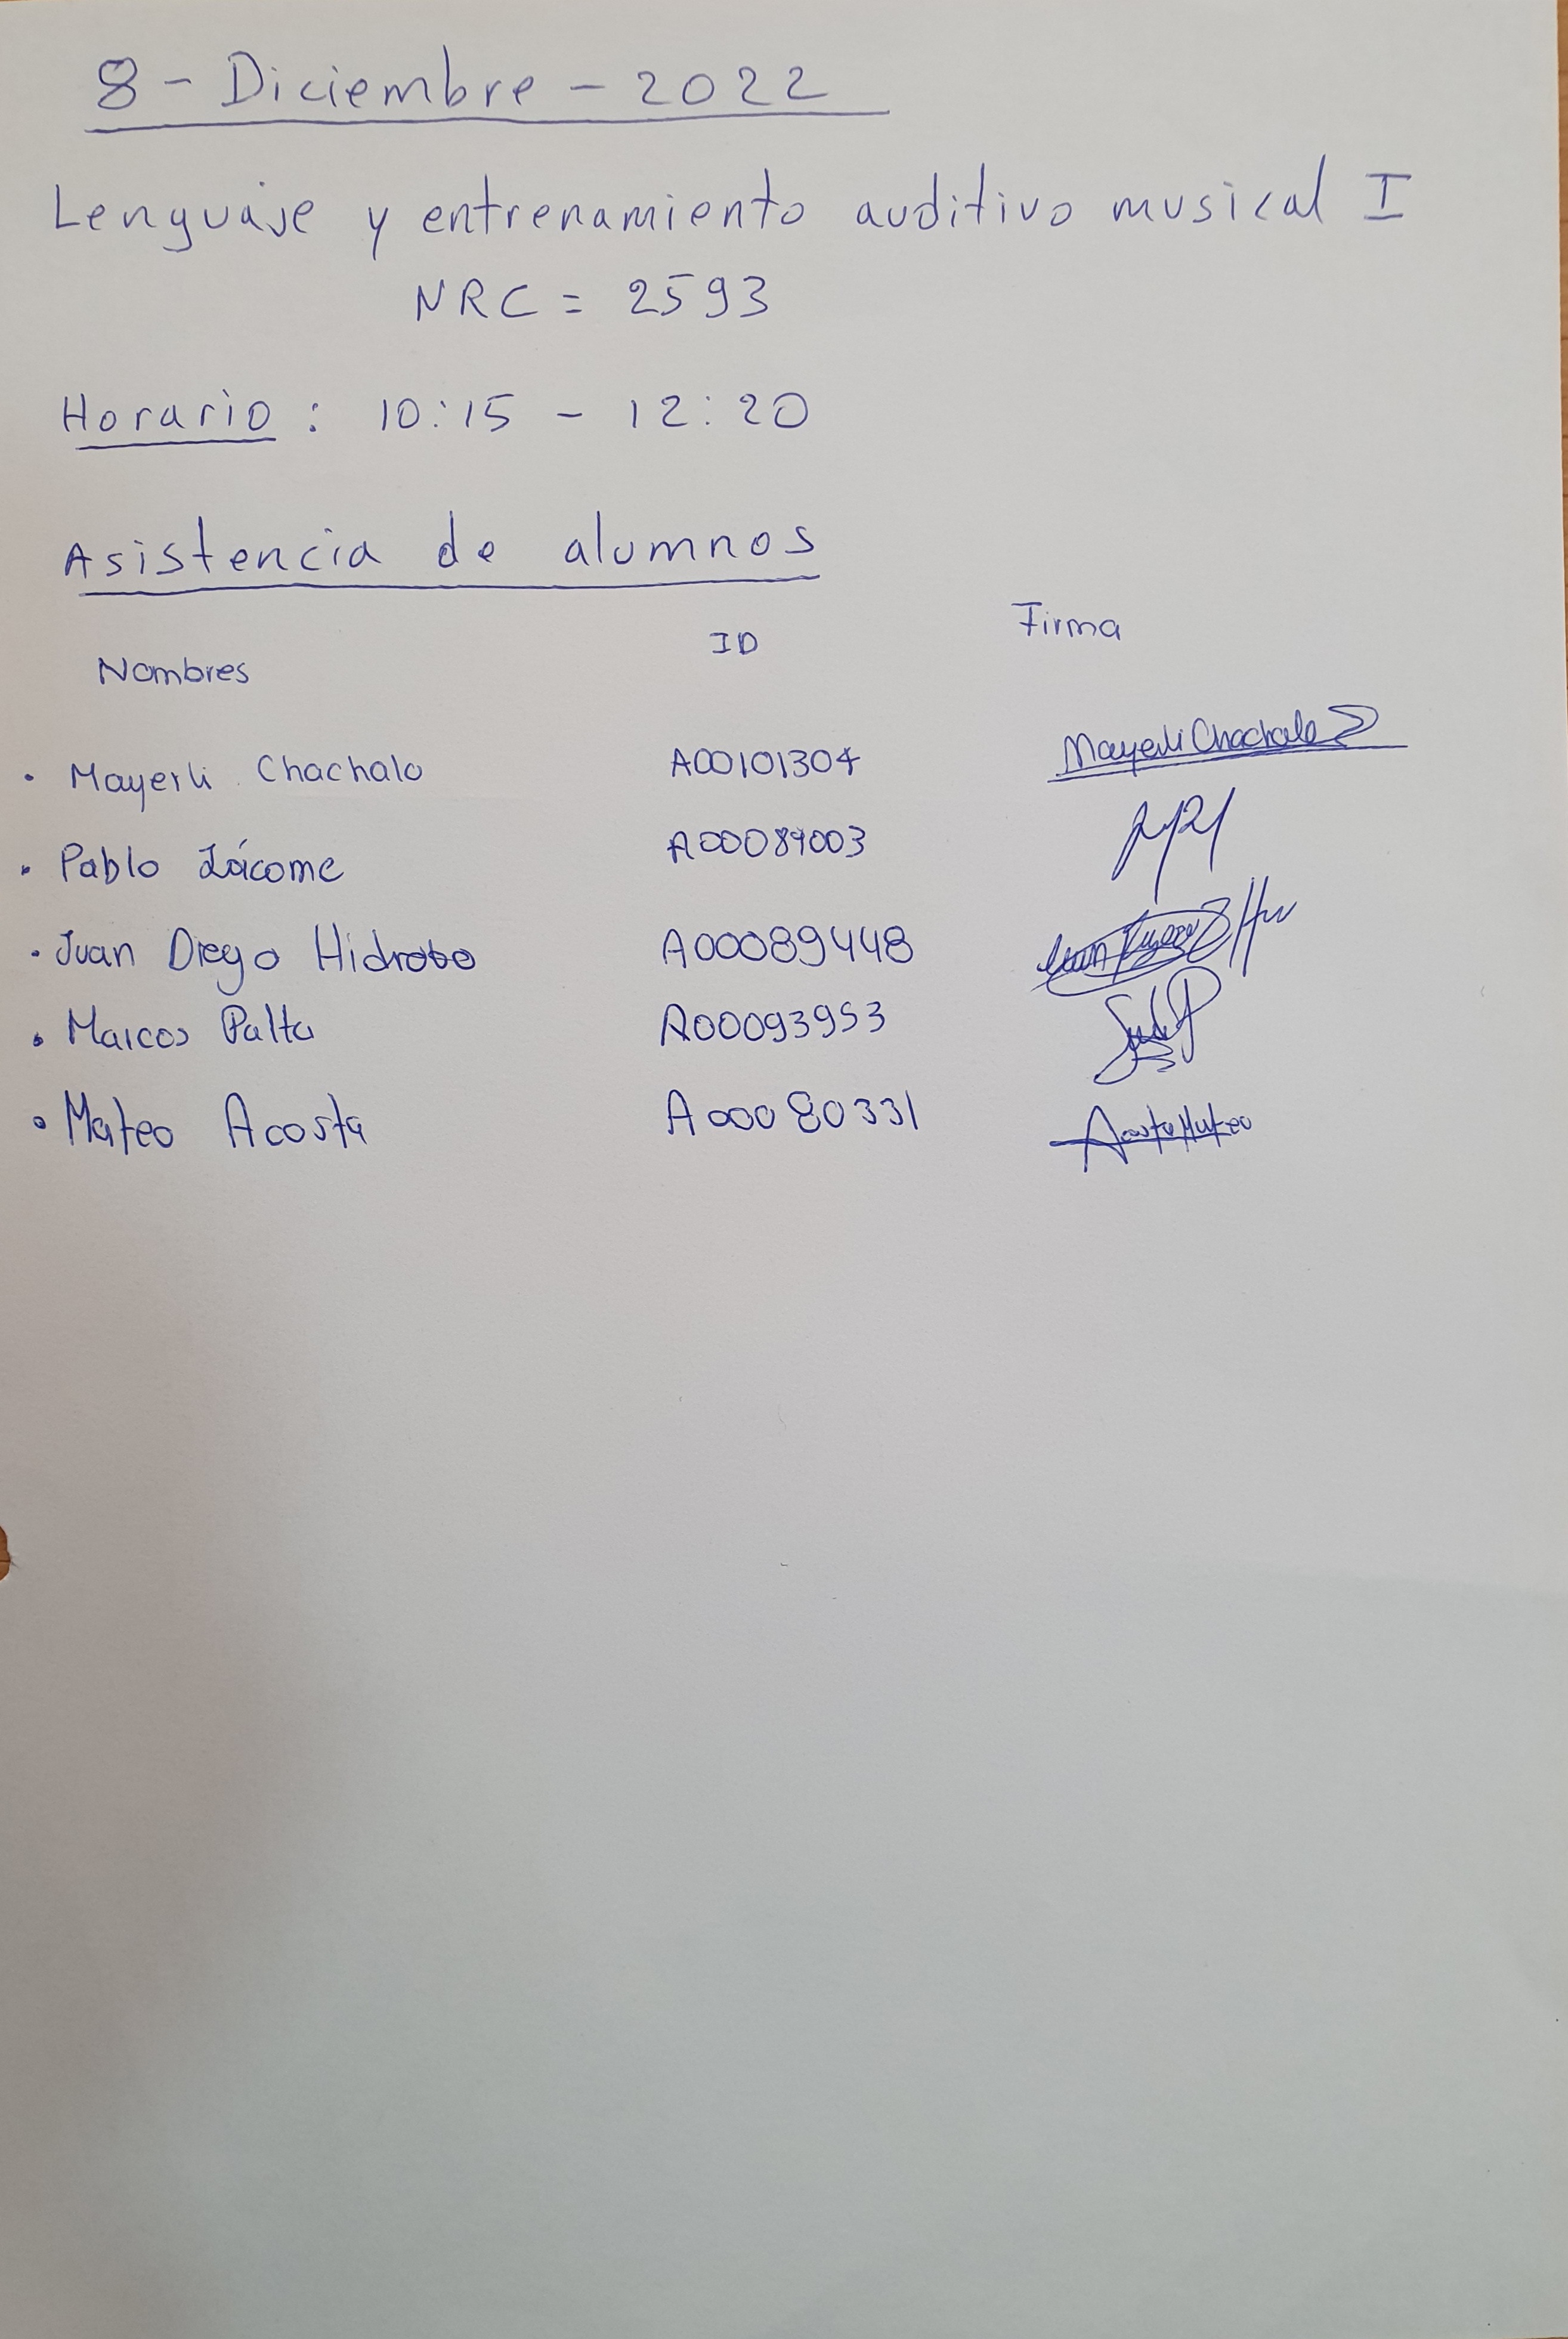 8 - Diciembre - 2022
Lenguaje y entrenamiento auditivo musical I
NRC = 2593
Horario : 10:15 - 12:20
Asistencia de alumnos
Nombres ID Firma
• Mayerli Chachalo A00101304 Mayerli Chachalo
• Pablo Jácome A00089003
• Juan Diego Hidrobo A00089448
• Marcos Palta A00093953
• Mateo Acosta A00080331 Acosta Mateo